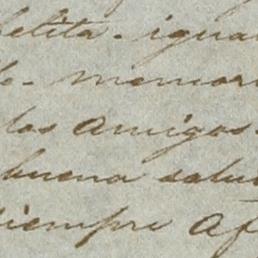 felita. igual
de memori
los amigos.
buena salud
siempre af